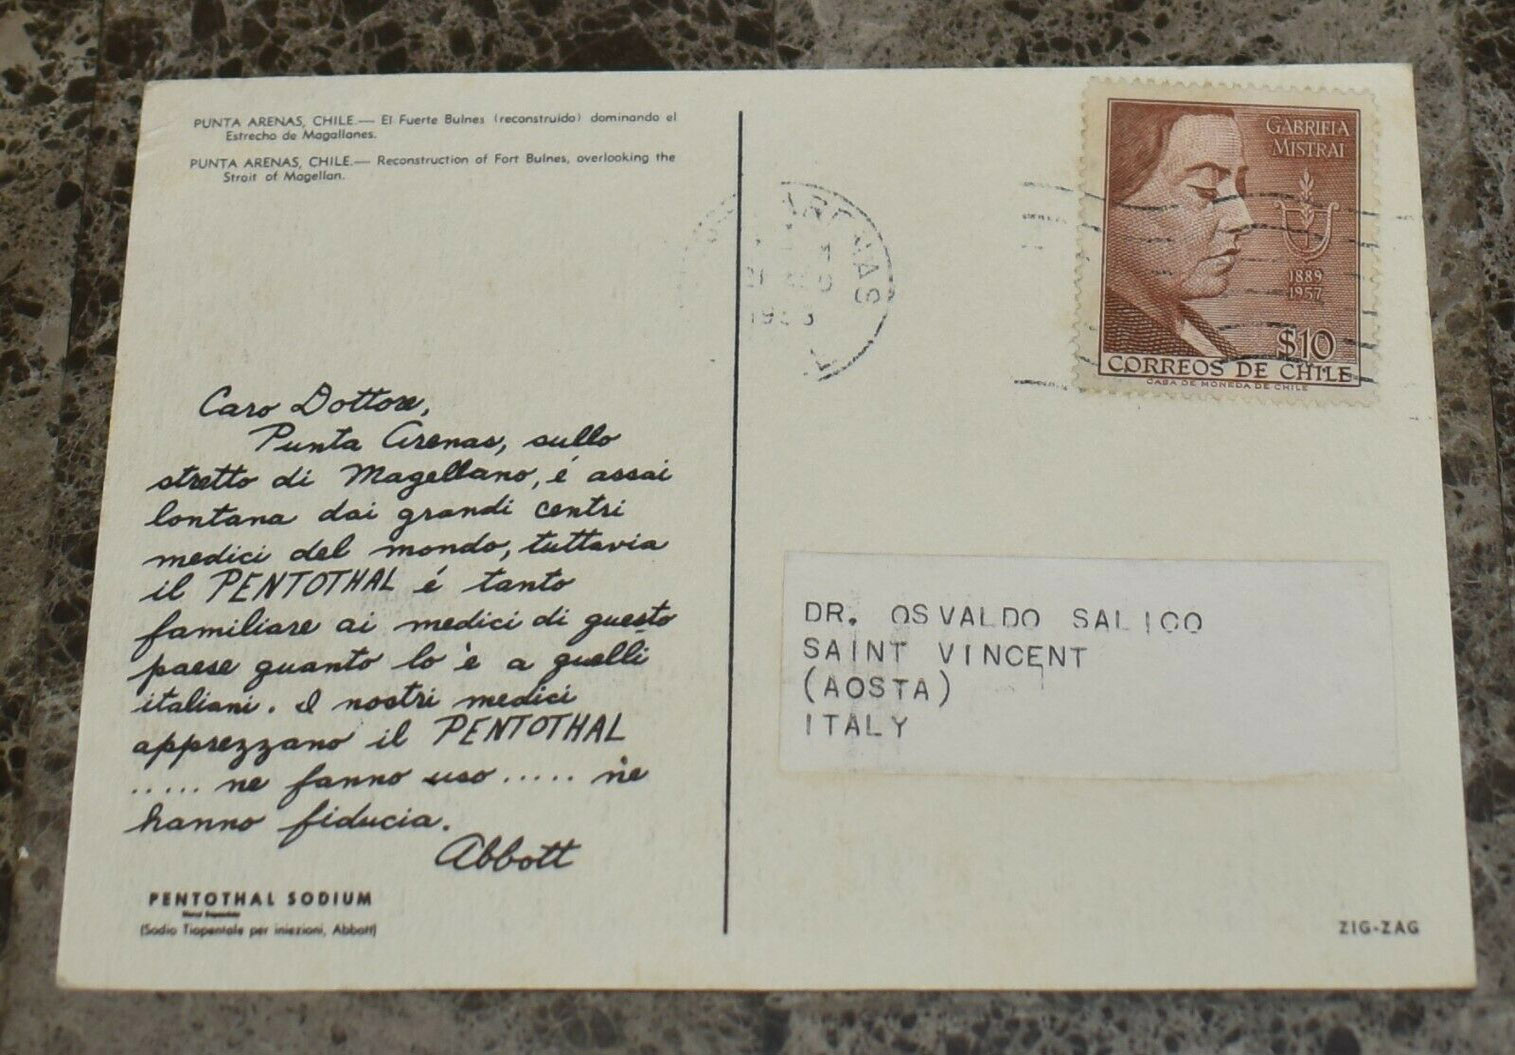 PUNTA ARENAS, CHILE.— El Fuerte Bulnes (reconstruido) dominando el
Estrecho de Magallanes.
PUNTA ARENAS, CHILE.— Reconstruction of Fort Bulnes, overlooking the
Strait of Magellan.
Caro Dottore,
Punta Arenas, sullo
stretto di Magellano, é assai
lontana dai grandi centri
medici del mondo, tuttavia
il PENTOTHAL é tanto
familiare ai medici di questo
paese quanto lo è a quelli
italiani. I nostri medici
apprezzano il PENTOTHAL
..... ne fanno uso ..... ne
hanno fiducia.
Abbott
PENTOTHAL SODIUM
(Sodio Tiopentale per iniezioni, Abbott)
ARENAS
GABRIELA
MISTRAL
1889
1957
$10
CORREOS DE CHILE
CASA DE MONEDA DE CHILE
DR. OSVALDO SALICO
SAINT VINCENT
(AOSTA)
ITALY
ZIG-ZAG